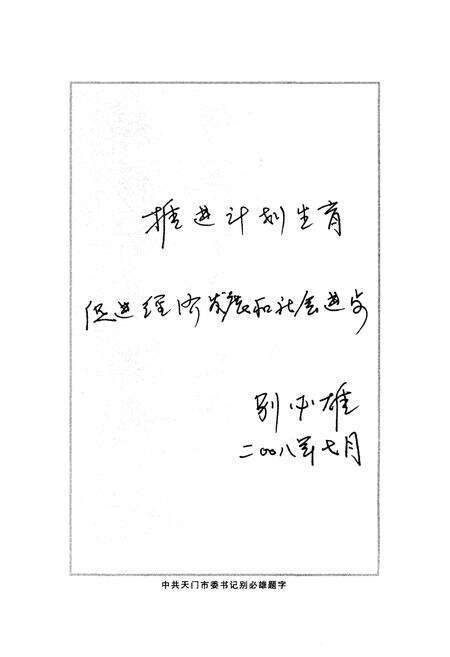 推进计划生育
促进经济发展和社会进步
别必雄
二〇〇八年七月
中共天门市委书记别必雄题字